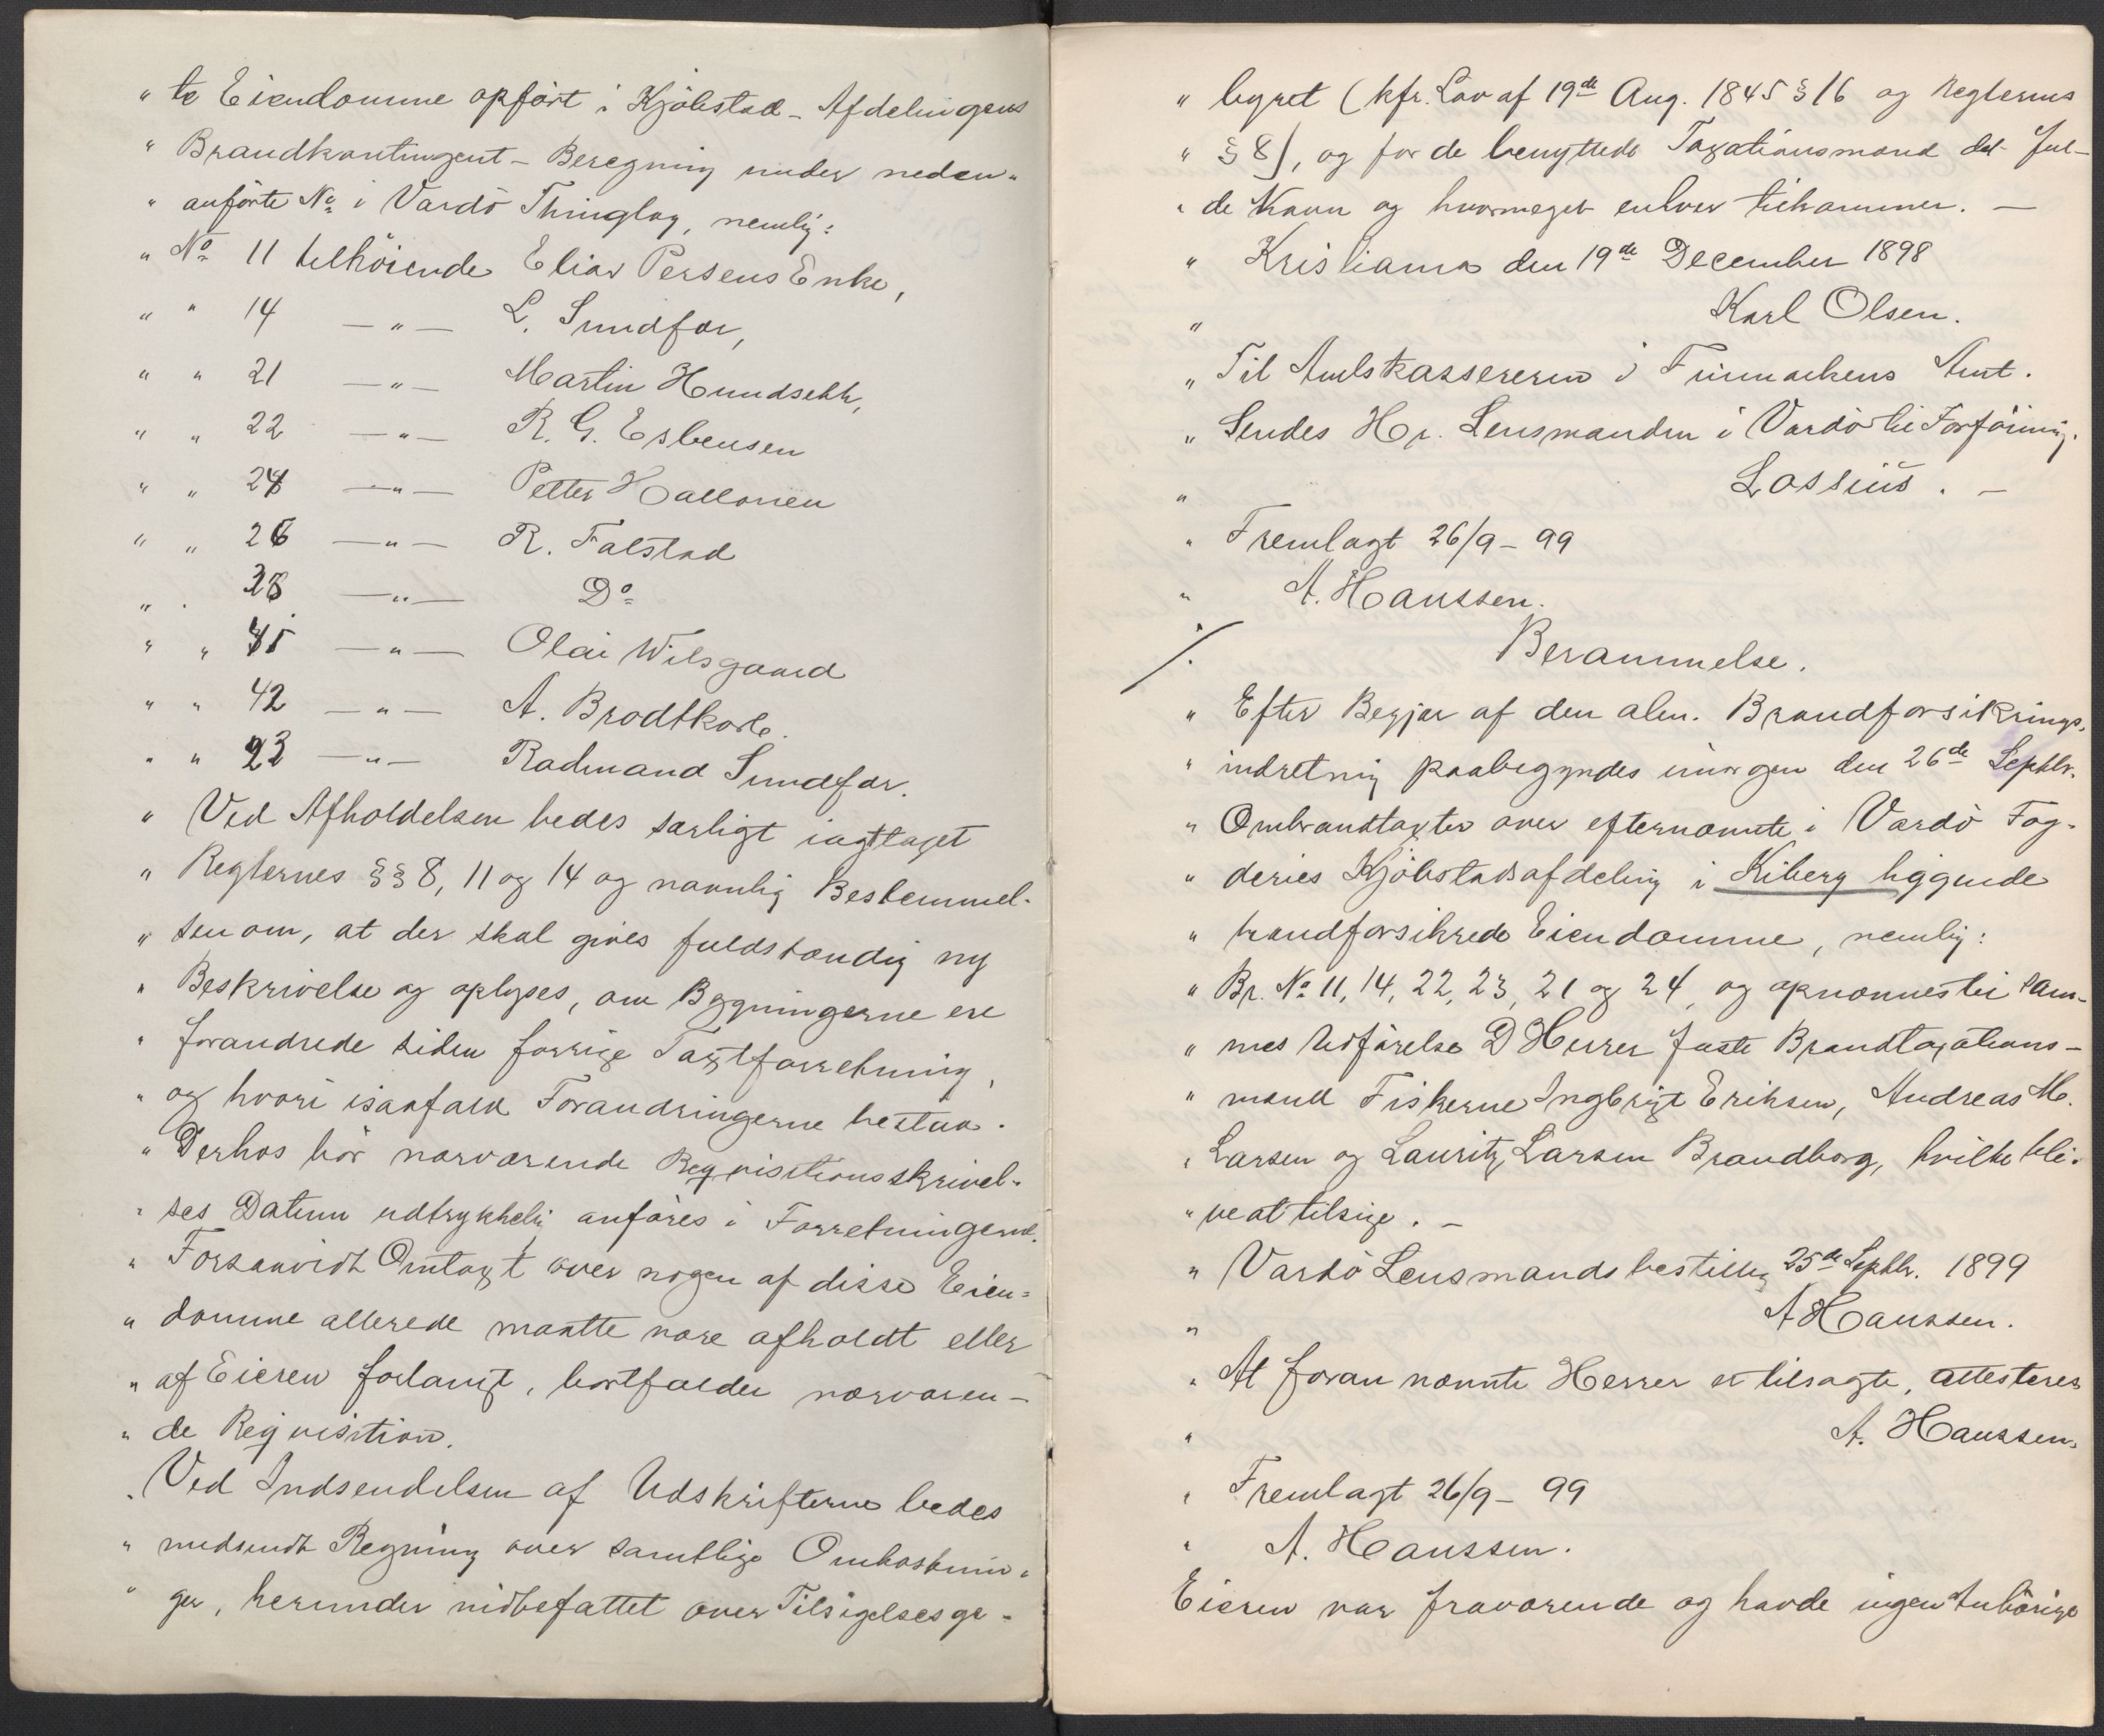 " te Eiendomme opført i Kjøbstad-Afdelingens
" Brandkontingent-Beregning under neden-
" anførte No i Vardö Thinglag, nemlig:
" No 11 tilhörende Elias Persens Enke,
" " 14 —"— L. Sundfær,
" " 21 —"— Martin Hundsehk,
" " 22 —"— R. G. Esbensen
" " 24 —"— Petter Hallonen
" " 26 —"— R. Falstad
" " 28 —"— Do
" " 41 —"— Olai Wilsgaard
" " 42 —"— A. Brodtkorb.
" " 23 —"— Radmand Sundfær.
" Ved Afholdelsen bedes særligt iagttaget
" Reglernes §§ 8, 11 og 14 og navnlig Bestemmel-
" sen om, at der skal gives fuldstændig ny
" Beskrivelse og oplyses, om Bygningerne ere
" forandrede siden forrige Taxtforretning,
" og hvori isaafald Forandringerne bestaa.
" Derhos bör nærværende Reqvisitionsskrivel-
" ses Datum udtrykkelig anføres i Forretningerne.
" Forsaavidt Omtaxt over nogen af disse Eien-
" domme allerede maatte være afholdt eller
" af Eieren forlangt, bortfalder nærværen-
" de Reqvisition.
" Ved Indsendelsen af Udskrifterne bedes
" medsendt Regning over samtlige Omkostnin-
" ger, herunder indbefattet over Tilsigelsesge-
" byret (kfr. Lov af 19de Aug. 1845 § 16 og Reglernes
" § 8), og for de benyttede Taxationsmænd det ful-
" de Navn og hvormeget enhver tilkommer. —
" Kristiania den 19de December 1898
" Karl Olsen.
" Til Amtskassereren i Finmarkens Amt.
" Sendes Hr. Lensmanden i Vardö til Forföining.
" Lossius. —
" Fremlagt 26/9 - 99
" A. Hanssen.
"/. Berammelse.
" Efter Begjær af den alm. Brandforsikrings-
" indretning paabegyndes imorgen den 26de Septbr.
" Ombrandtaxter over efternævnte i Vardö Fog-
" deries Kjöbstadsafdeling i Kiberg liggende
" brandforsikrede Eiendomme, nemlig:
" Br. No 11, 14, 22, 23, 21 og 24, og opnævnes til sam-
" mes Udførelse D'Herrer faste Brandtaxations-
" mænd Fiskerne Ingbrigt Eriksen, Andreas M.
" Larsen og Lauritz Larsen Brandborg, hvilke bli-
" ve at tilsige. —
" Vardö Lensmandsbestilling 25de Septbr. 1899
" A Hanssen.
" At foran nævnte Herrer er tilsagte, attesteres
" A. Hanssen.
" Fremlagt 26/9 - 99
" A. Hanssen.
Eieren var fraværende og havde ingen Anhörige